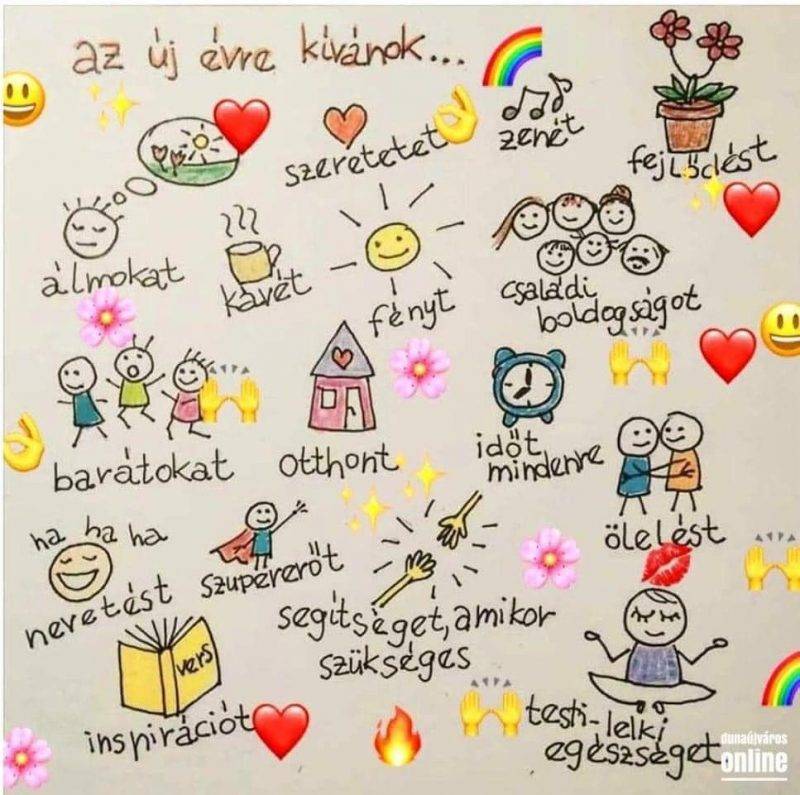 az új évre kívánok...
zenét
szeretetet
fejlődést
álmokat
kávét
fényt
családi
boldogságot
barátokat
otthont
időt
mindenre
ölelést
ha ha ha
nevetést
szupererőt
segítséget, amikor
szükséges
vers
inspirációt
testi-lelki
egészséget
dunaújváros
online